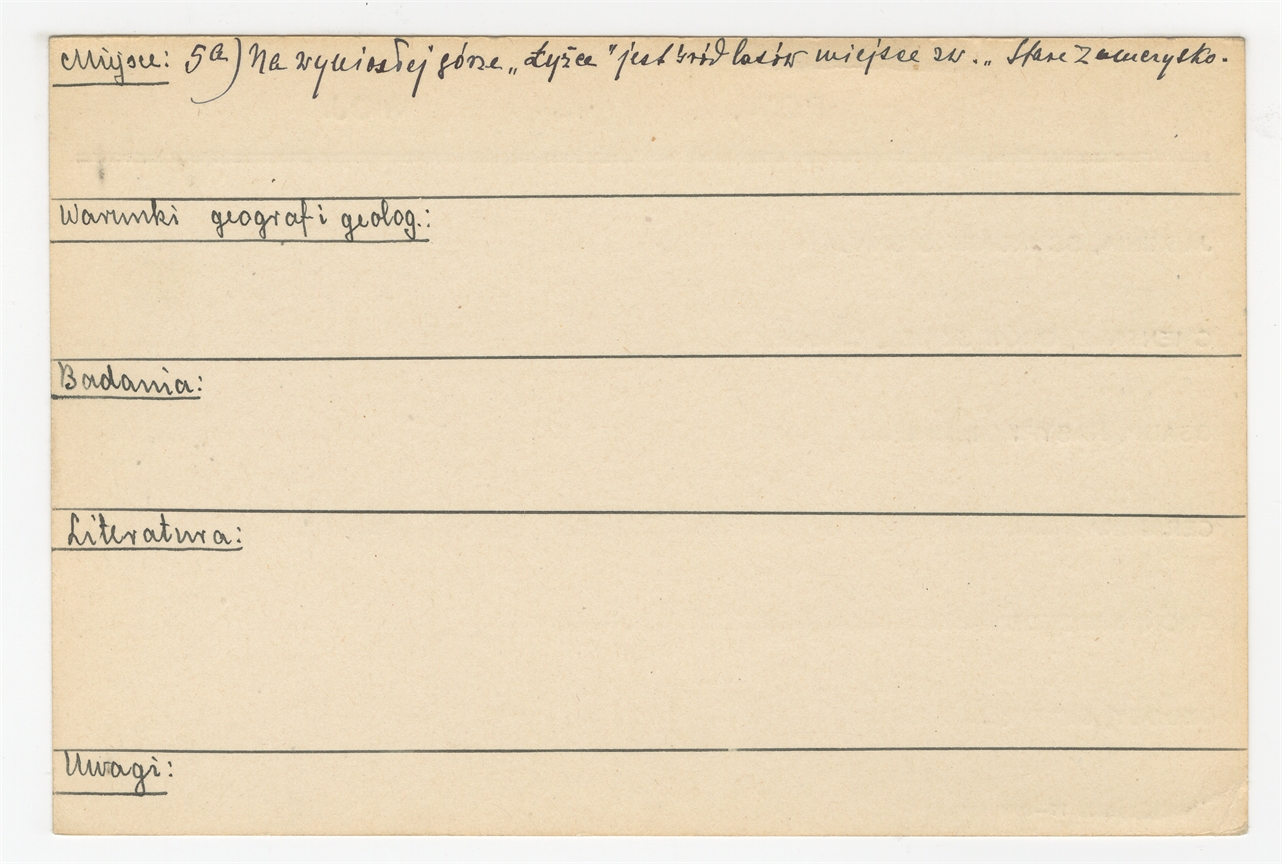 Miejsce: 5a) Na wyniosłej górze „Łyżce" jest wśród lasów miejsce zw. „Stare Zamczysko.
Warunki geograf i geolog.:
Badania:
Literatura:
Uwagi: